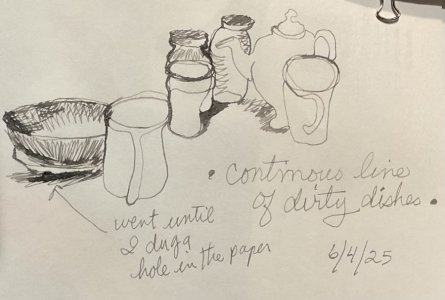 • continuous line
of dirty dishes •
went until
I dug a
hole in the paper
6/4/25